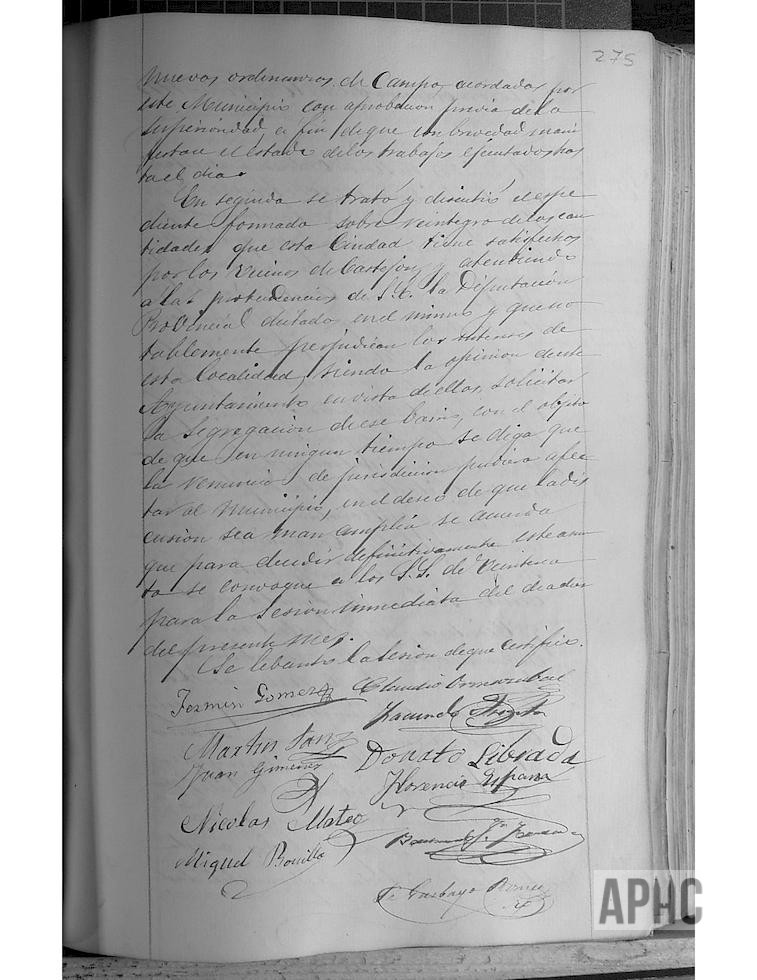 275
nuevas ordenanzas de Campo, acordadas por
este Municipio con aprobacion previa de la
superioridad, a fin de que con brevedad mani
festara el estado de los trabajos efectuados has
ta el dia.
En seguida se trató y discutió el espe
diente formado sobre reintegro de las can
tidades que esta Ciudad tiene satisfechos
por los vecinos de Castejon, y atendiendo
a las providencias de S.E. la Diputación
Provincial dictada en el mismo y que no
tablemente perjudican los intereses de
esta localidad, siendo la opinion de este
Ayuntamiento en vista de ellas, solicitar
la segregación de ese barrio, con el objeto
de que en ningun tiempo se diga que
la renuncia de jurisdiccion pudiera afec
tar al Municipio, en el deseo de que la dis
cusion sea mas amplia se acuerda
que para decidir definitivamente este asun
to se convoque a los S.S. de Veintena
para la sesion inmediata del dia
del presente mes.
Se lebantó la sesion de que certifico.
Fermin Gomez Claudio
Facundo
Martin Sanz
Juan Gimenez Donato Librada
Florencio España
Nicolas Mateo
Miguel Bonilla
APHC